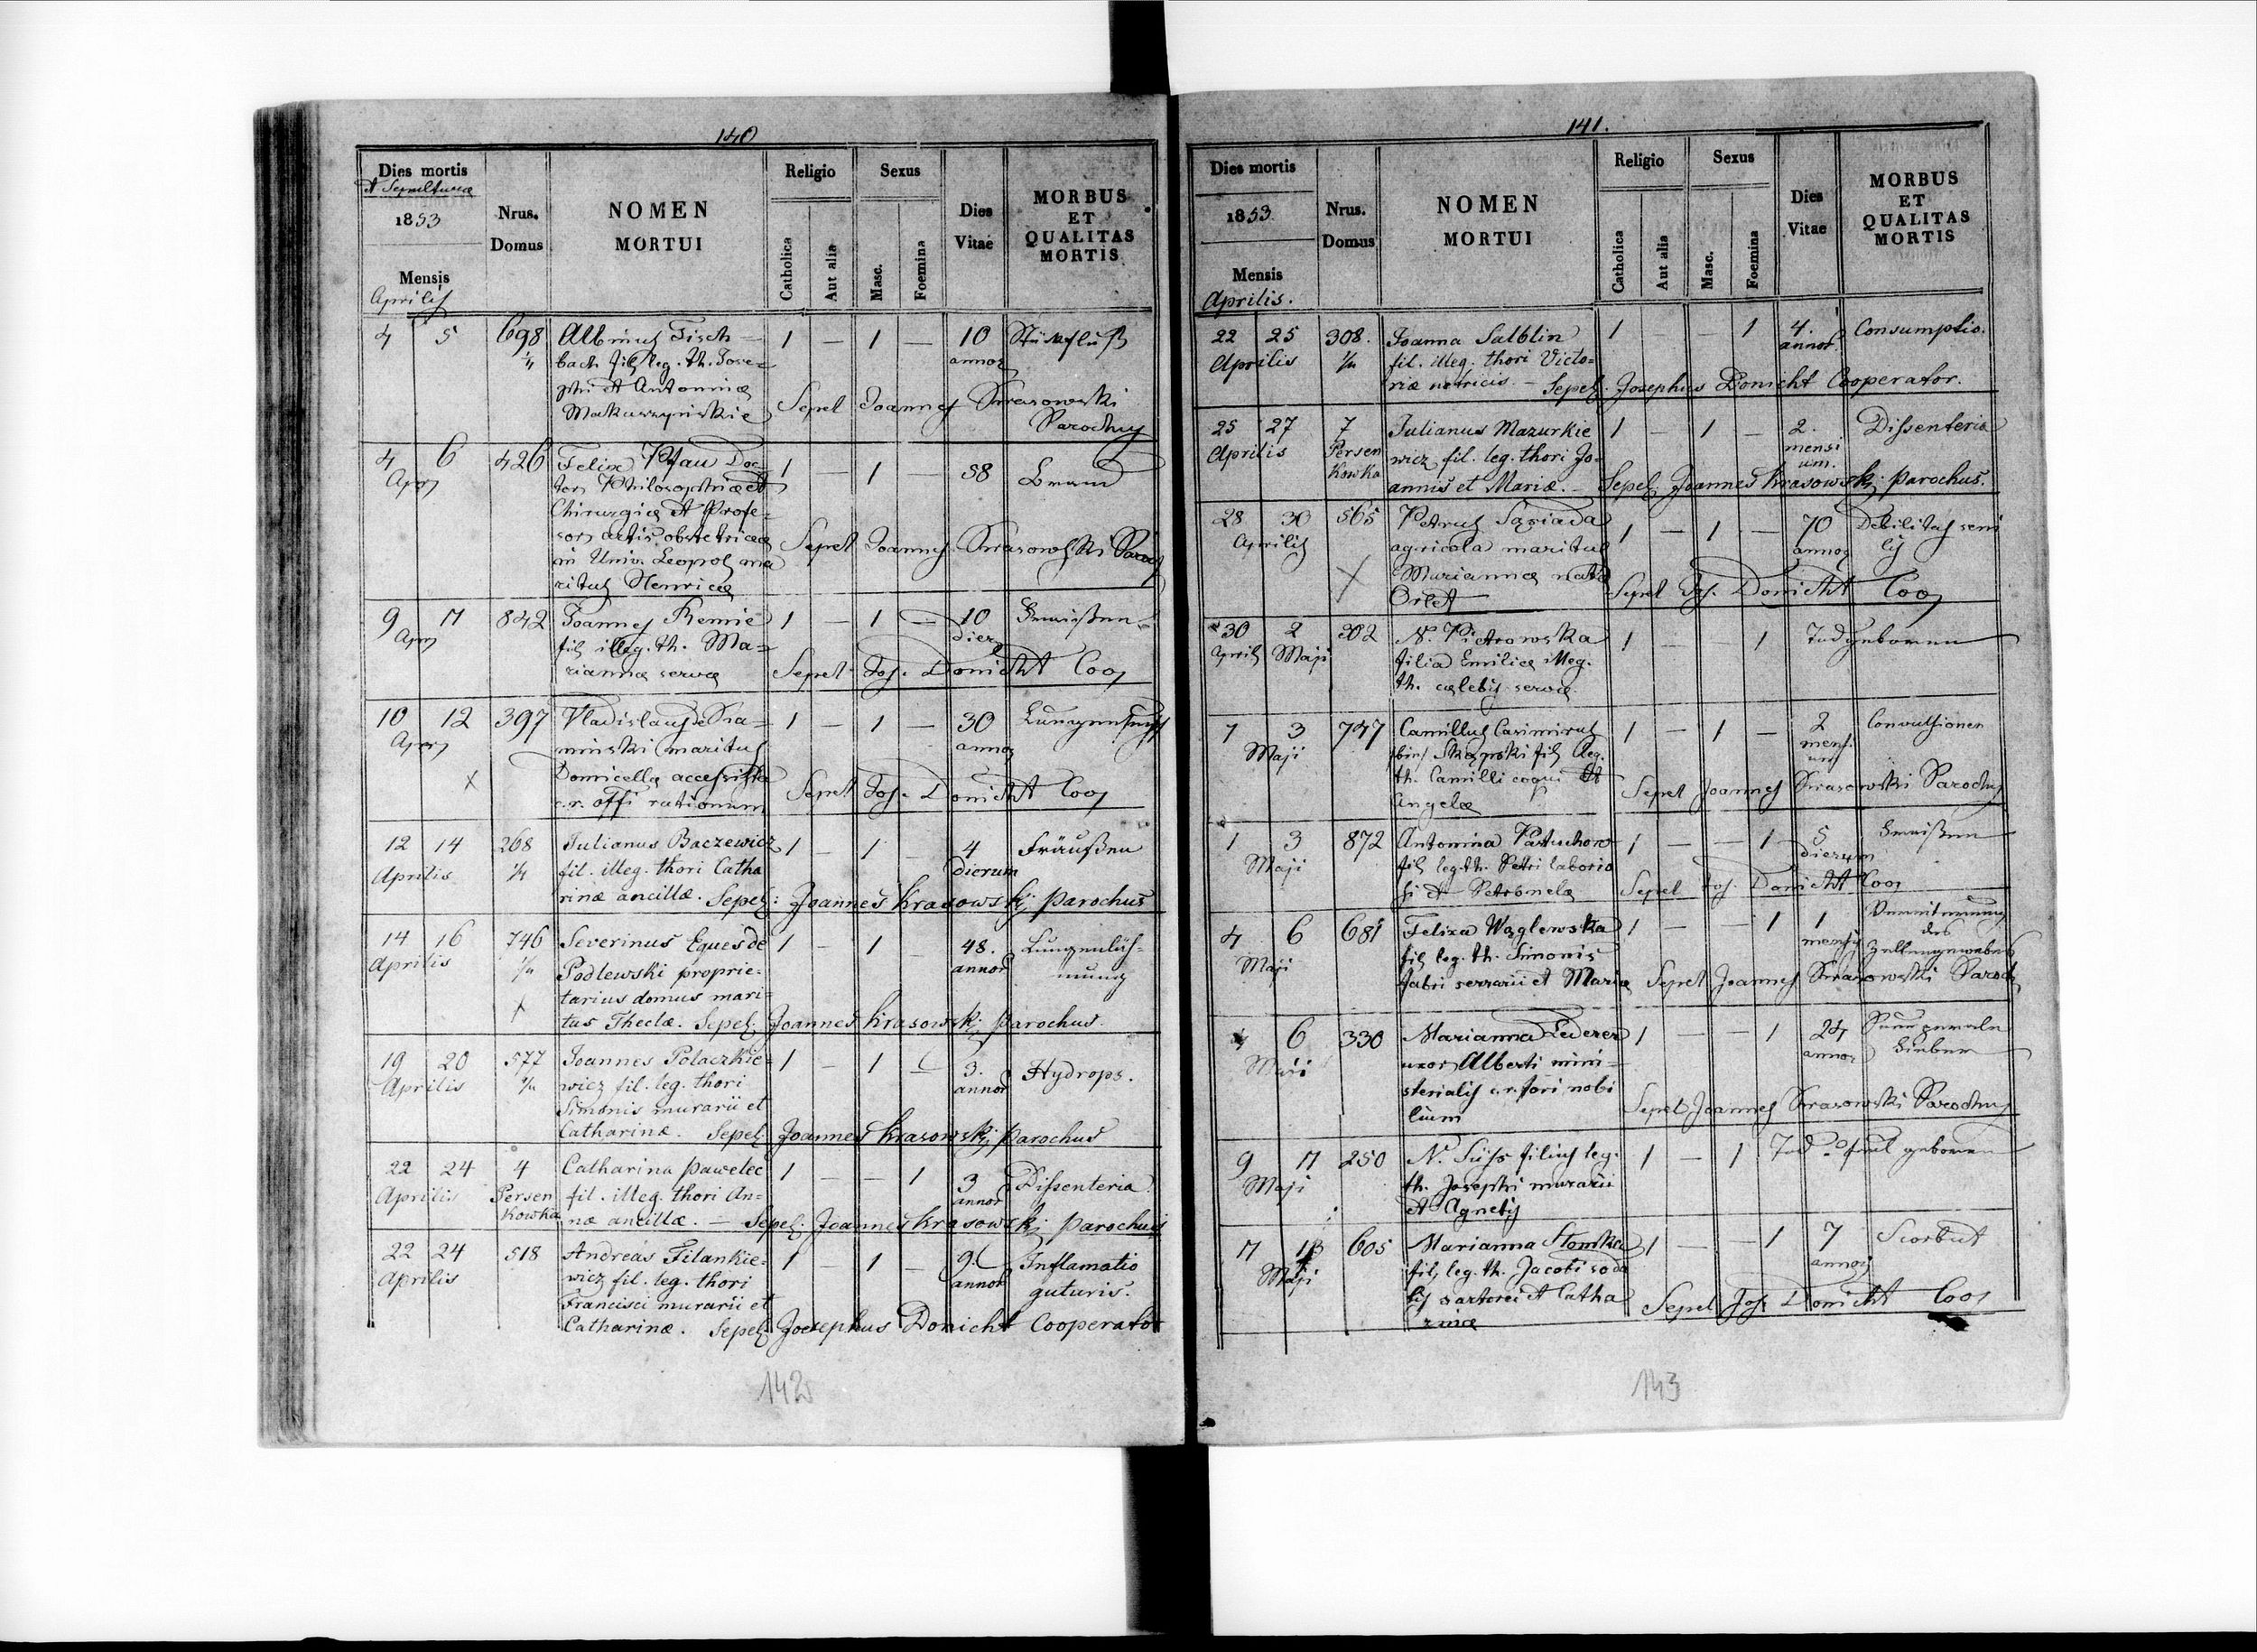 140
Dies mortis
et Sepulturae
1853
Mensis
Aprilis
Nrus.
Domus
NOMEN
MORTUI
Religio
Catholica
Aut alia
Sexus
Masc.
Foemina
Dies
Vitae
MORBUS
ET
QUALITAS
MORTIS
4 5 698 Albinus Fisch- 1 — 1 — 10 Stückfluß
1/4 bach fil. leg. th. Jose- annor
phi et Antoninae
Makuszynskie Sepel Joannes Krasowski
Parochus
4 6 426 Felix Pfau Doc- 1 — 1 58 Brand
Apr tor Philosophiae et
Chirurgiae et Profe-
sor artis obstetriciae Sepel Joannes Krasowski Paroch
in Univ. Leopol ma
ritus Henricae
9 11 842 Joannes Remie 1 — 1 — 10
Apr fil illeg. th. Ma- dier
riannae servae Sepel Jos. Donicht Coop
10 12 397 Vladislaus 1 — 1 — 30
Apr minski maritus annor
X Domicellae accessista
c.r. offi rationum Sepel Jos. Donicht Coop
12 14 268 Julianus Baczewicz 1 — 1 — 4 Fräußen
Aprilis 1/4 fil. illeg. thori Catha dierum
rinae ancillae. Sepel: Joannes Krasowskj parochus
14 16 746 Severinus Eques de 1 — 1 — 48. Lungenläh-
Aprilis 1/4 Podlewski proprie- annor mung
X tarius domus mari-
tus Theclae. Sepel. Joannes Krasowskj parochus.
19 20 577 Joannes Polaczkie- 1 — 1 — 3. Hydrops.
Aprilis 2/4 wicz fil. leg. thori annor
Simonis murarii et
Catharinae. Sepel Joannes Krasowskj parochus
22 24 4 Catharina Pawelec 1 — — 1 3 Dissenteria
Aprilis Persen fil. illeg. thori An- annor
kowka nae ancillae. — Sepel. Joannes Krasowskj parochus
22 24 518 Andreas Filankie- 1 — 1 — 9. Inflamatio
Aprilis wicz fil. leg. thori annor guturis.
Francisci murarii et
Catharinae. Sepel Joesephus Donicht Cooperator
142
141.
Dies mortis
1853.
Mensis
Aprilis.
Nrus.
Domus
NOMEN
MORTUI
Religio
Catholica
Aut alia
Sexus
Masc.
Foemina
Dies
Vitae
MORBUS
ET
QUALITAS
MORTIS
22 25 308. Joanna Salblin 1 — — 1 4. Consumptio.
Aprilis 1/4 fil. illeg. thori Victo- annor
riae nutricis. — Sepel. Josephus Donicht Cooperator.
25 27 7 Julianus Mazurkie 1 — 1 — 2. Dissenteria
Aprilis Persen wicz fil. leg. thori Jo- mensi
kowka annis et Mariae. — um. Sepel. Joannes Krasowskj parochus.
28 30 565 Petrus Sasiada 1 — 1 — 70 Debilitas seni
Aprilis agricola maritus annor lis
X Mariannae nata
Orlet Sepel Jos. Donicht Coop
30 2 302 N. Pietrowska 1 — — 1 Todgeboren
Aprils Maji filia Emiliae illeg.
th. caelebis servae
1 3 747 Camillus Casimirus 1 — 1 — 2 Convulsionen
Maji bin Skapski fil leg. mens.
th. Camilli coqui et um
Angelae Sepel Joannes Krasowski Parochus
1 3 872 Antonina Pastuchow 1 — — 1 5
Maji fil leg. th. Petri laborio dierum
si et Petronelae Sepel Jos. Donicht Coop
4 6 681 Felixa Węglewska 1 — — 1 1
Maji fil leg. th. Simonis mensis des Zellengewebes
fabri serrarii et Mariae Sepel Joannes Krasowski Paroch
4 6 330 Marianna Lederer 1 — — 1 24
Maji uxor Alberti mini- annor
sterialis c.r. fori nobi
lium Sepel Joannes Krasowski Parochus
9 11 250 N. Süss filius leg. 1 — 1 geboren
Maji th. Josephi murarii
et Agnetis
11 13 605 Marianna Stomka 1 — — 1 7 Scorbut
Maji fil leg. th. Jacobi soda annor
lis sartorei et Catha
rinae Sepel Jos Donicht Coop
143